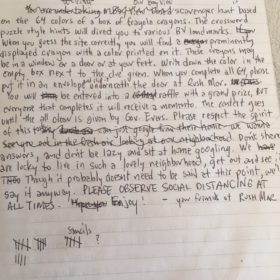 scavenger hunt based
on the 64 colors of a box of Crayola crayons. The crossword
puzzle style hints will direct you to various BV landmarks. If
When you guess the site correctly, you will find a prominently
displayed crayon with a color printed on it. These crayons may
be in a window or a door or at your feet. Write down the color in the
empty box next to the clue given. When you complete all 64
put it in an envelope underneath the door at Rush Mor.
You will be entered into a raffle with a grand prize, but
everyone that completes it will receive a memento. The contest goes
until the all clear is given by Gov. Evers. Please respect the spirit
of this
Don't share
answers, and don't be lazy and sit at home googling. We
are lucky to live in such a lovely neighborhood, get out and see
Though it probably doesn't need to be said at this point, we'll
say it anyway. PLEASE OBSERVE SOCIAL DISTANCING AT
ALL TIMES. Enjoy! - your friends at RUSH MOR
Stencils
?